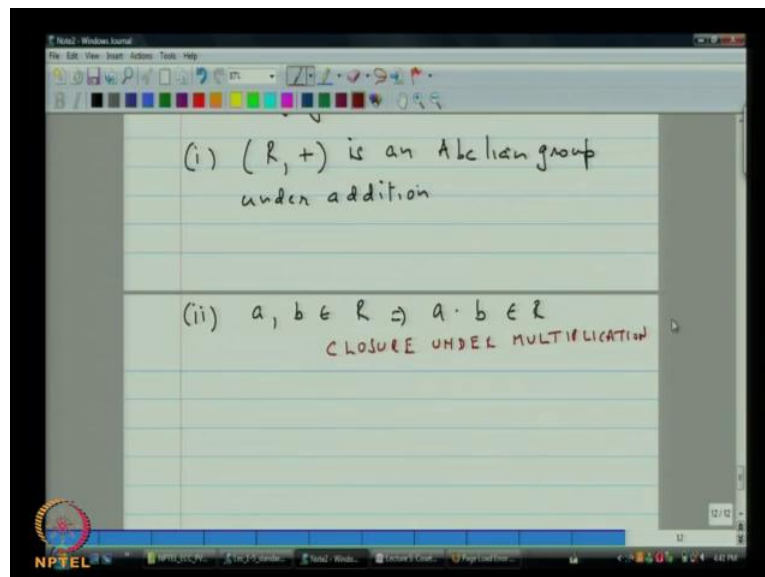 Note2 - Windows Journal
File Edit View Insert Actions Tools Help
(i) (R, +) is an Abelian group
under addition
(ii) a, b ∈ R ⇒ a · b ∈ R
CLOSURE UNDER MULTIPLICATION
12/12
12
NPTEL
Note2 - Windo...
4:41 PM